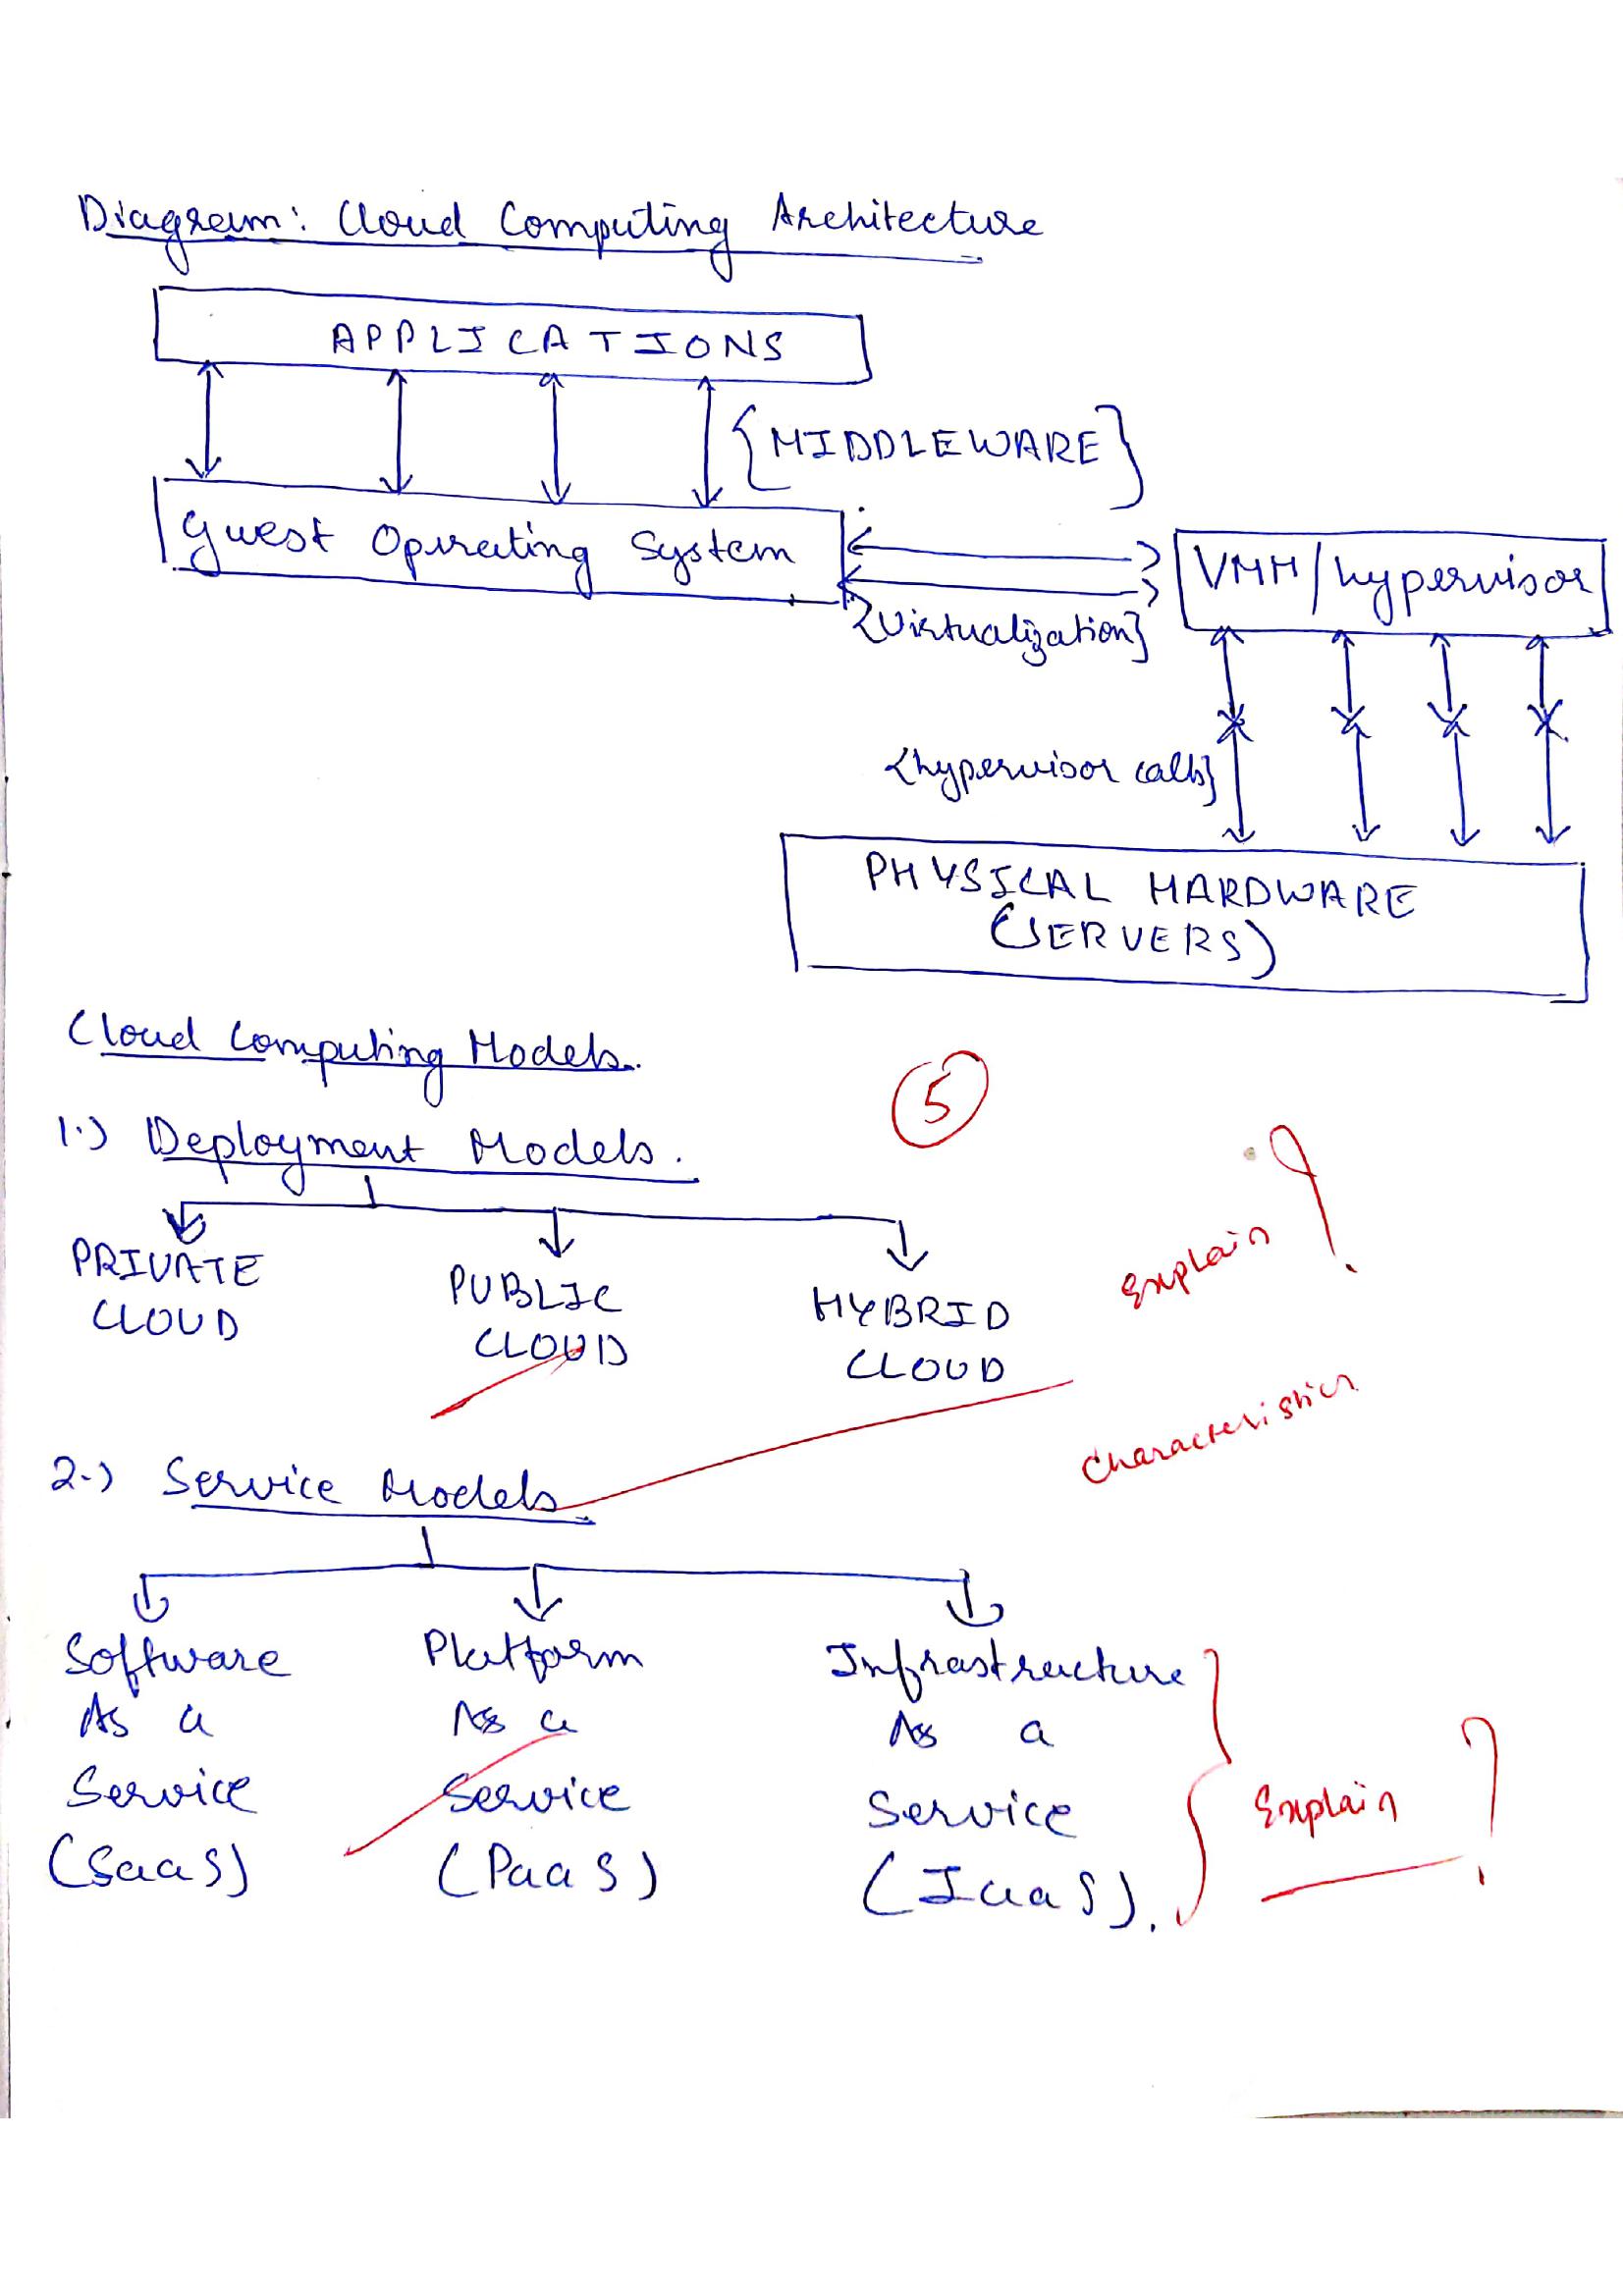 Diagram: Cloud Computing Architecture
APPLICATIONS
{MIDDLEWARE}
Guest Operating System
VMM/hypervisor
{Virtualization}
{hypervisor calls}
PHYSICAL HARDWARE
(SERVERS)
Cloud Computing Models.
5
1.) Deployment Models.
PRIVATE
CLOUD
PUBLIC
CLOUD
HYBRID
CLOUD
Explain ?
Characteristics
2.) Service Models
Software
As a
Service
(SaaS)
Platform
As a
Service
(PaaS)
Infrastructure
As a
Service
(IaaS).
Explain ?